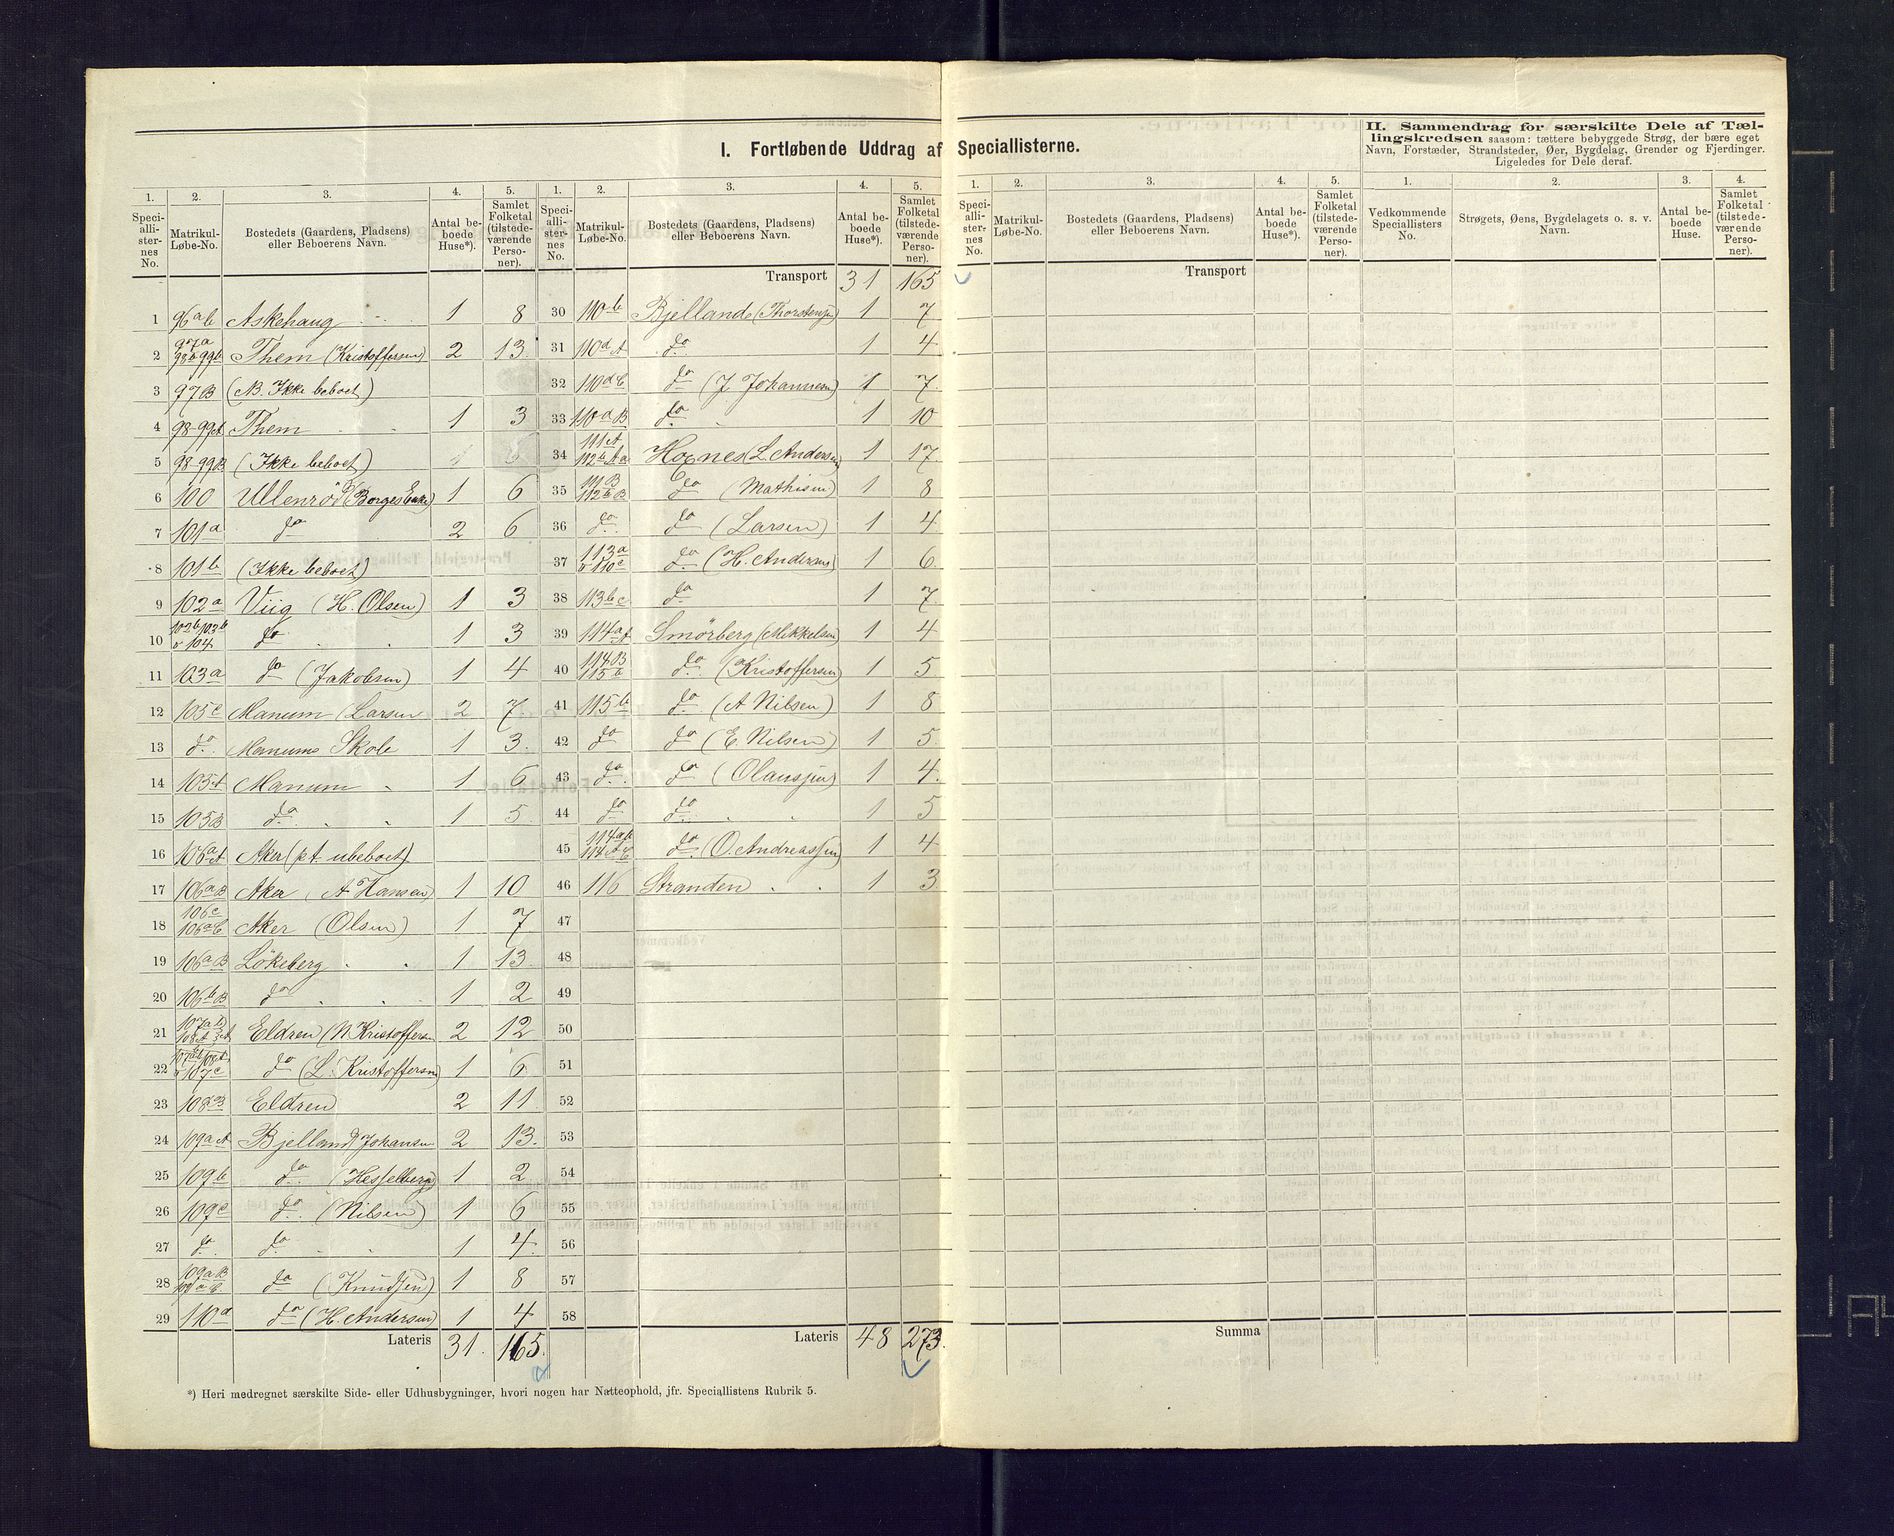 I. Fortløbende Uddrag af Speciallisterne.
II. Sammendrag for særskilte Dele af Tæl-
lingskredsen saasom: tættere bebyggede Strøg, der bære eget
Navn, Forstæder, Strandsteder, Øer, Bygdelag, Grender og Fjerdinger.
Ligeledes for Dele deraf.
1. 2. 3. 4. 5. 1. 2. 3. 4. 5. 1. 2. 3. 4. 5. 1. 2. 3. 4.
Speciallisternes No. Matrikul-Løbe-No. Bostedets (Gaardens, Pladsens) eller Beboerens Navn. Antal beboede Huse*). Samlet Folketal (tilstedeværende Personer).
Speciallisternes No. Matrikul-Løbe-No. Bostedets (Gaardens, Pladsens) eller Beboerens Navn. Antal beboede Huse*). Samlet Folketal (tilstedeværende Personer).
Speciallisternes No. Matrikul-Løbe-No. Bostedets (Gaardens, Pladsens) eller Beboerens Navn. Antal beboede Huse*). Samlet Folketal (tilstedeværende Personer).
Vedkommende Speciallisters No. Strøgets, Øens, Bygdelagets o. s. v. Navn. Antal beboede Huse. Samlet Folketal (tilstedeværende Personer).
1 96ab Askehaug 1 8
2 97a 98a 99b Them (Kristoffersen) 2 13.
3 97B (NB. Ikke beboet)
4 98-99A Them 1 3
5 98-99B (Ikke beboet)
6 100 Ullenrød (Borges Enke) 1 6
7 101a do 2 6
8 101b (Ikke beboet)
9 102a Viig (H. Olsen) 1 3
10 102b 103b o 104 do 1 3
11 103a do (Jakobsen) 1 4
12 105c Manum (Larsen 2 7
13 do. Manums Skole 1 3.
14 105A Manum 1 6
15 105B do 1 5
16 106aA Aker (pt ubeboet)
17 106aB Aker (A Hansen) 1 10
18 106c 106aC Aker (Olsen) 1 7
19 106aB Løkeberg 1 13.
20 106bB do 1 2
21 Eldren (N Kristoffersen 2 12
22 107c do (L. Kristoffersen) 1 6
23 108B Eldren 2 11
24 109aA Bjelland Johansen 2 13.
25 109b do. (Hesselberg) 1 2
26 109c do. (Nilsen) 1 6
27 do. do. 1 4.
28 109aB do (Knudsen) 1 8
29 110a do (H. Andersen) 1 4
Lateris 31. 165.
Transport 31 165
30 110ab Bjelland (Thorstensen) 1 7
31 110dA do 1 4
32 110dC do (J Johannesen) 1 7
33 110aB do. 1 10
34 111A 112bAa Hoxnes (L. Andersen) 1 17
35 111B 112bB do (Mathisen) 1 8
36 do. do (Larsen) 1 4
37 113a o 110c do. (H. Andersen) 1 6
38 113bc do 1 7.
39 114aA Smørberg (Mikkelsen) 1 4
40 114B 115a do. (Kristoffersen) 1 5
41 115b do (A Nilsen) 1 8
42 do do (E. Nilsen) 1 5.
43 do. do (Olaussen) 1 4.
44 do do. 1 5
45 114ab do. (O. Andreassen) 1 4
46 116 Stranden 1 3
47
48
49
50
51
52
53
54
55
56
57
58
Lateris 48 273.
Transport
Summa
*) Heri medregnet særskilte Side- eller Udhusbygninger, hvori nogen har Natteophold, jfr. Speciallistens Rubrik 5.